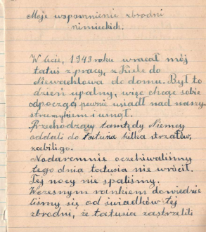 Moje wspomnienie zbrodni
niemieckich.
W lecie, 1943 roku wracał mój
tatuś z pracy, z
do domu. Był to
dzień upalny, więc chcąc sobie
odpocząć usiadł nad naszym
strumykiem i usnął.
Przechodzący tamtędy Niemcy
oddali do Tatusia kilka strzałów,
zabili go.
Nadaremnie oczekiwaliśmy
tego dnia tatusia nie wrócił.
Tej nocy nie spaliśmy.
Wczesnym rankiem dowiedzie
liśmy się od świadków tej
zbrodni, że tatusia zastrzelili